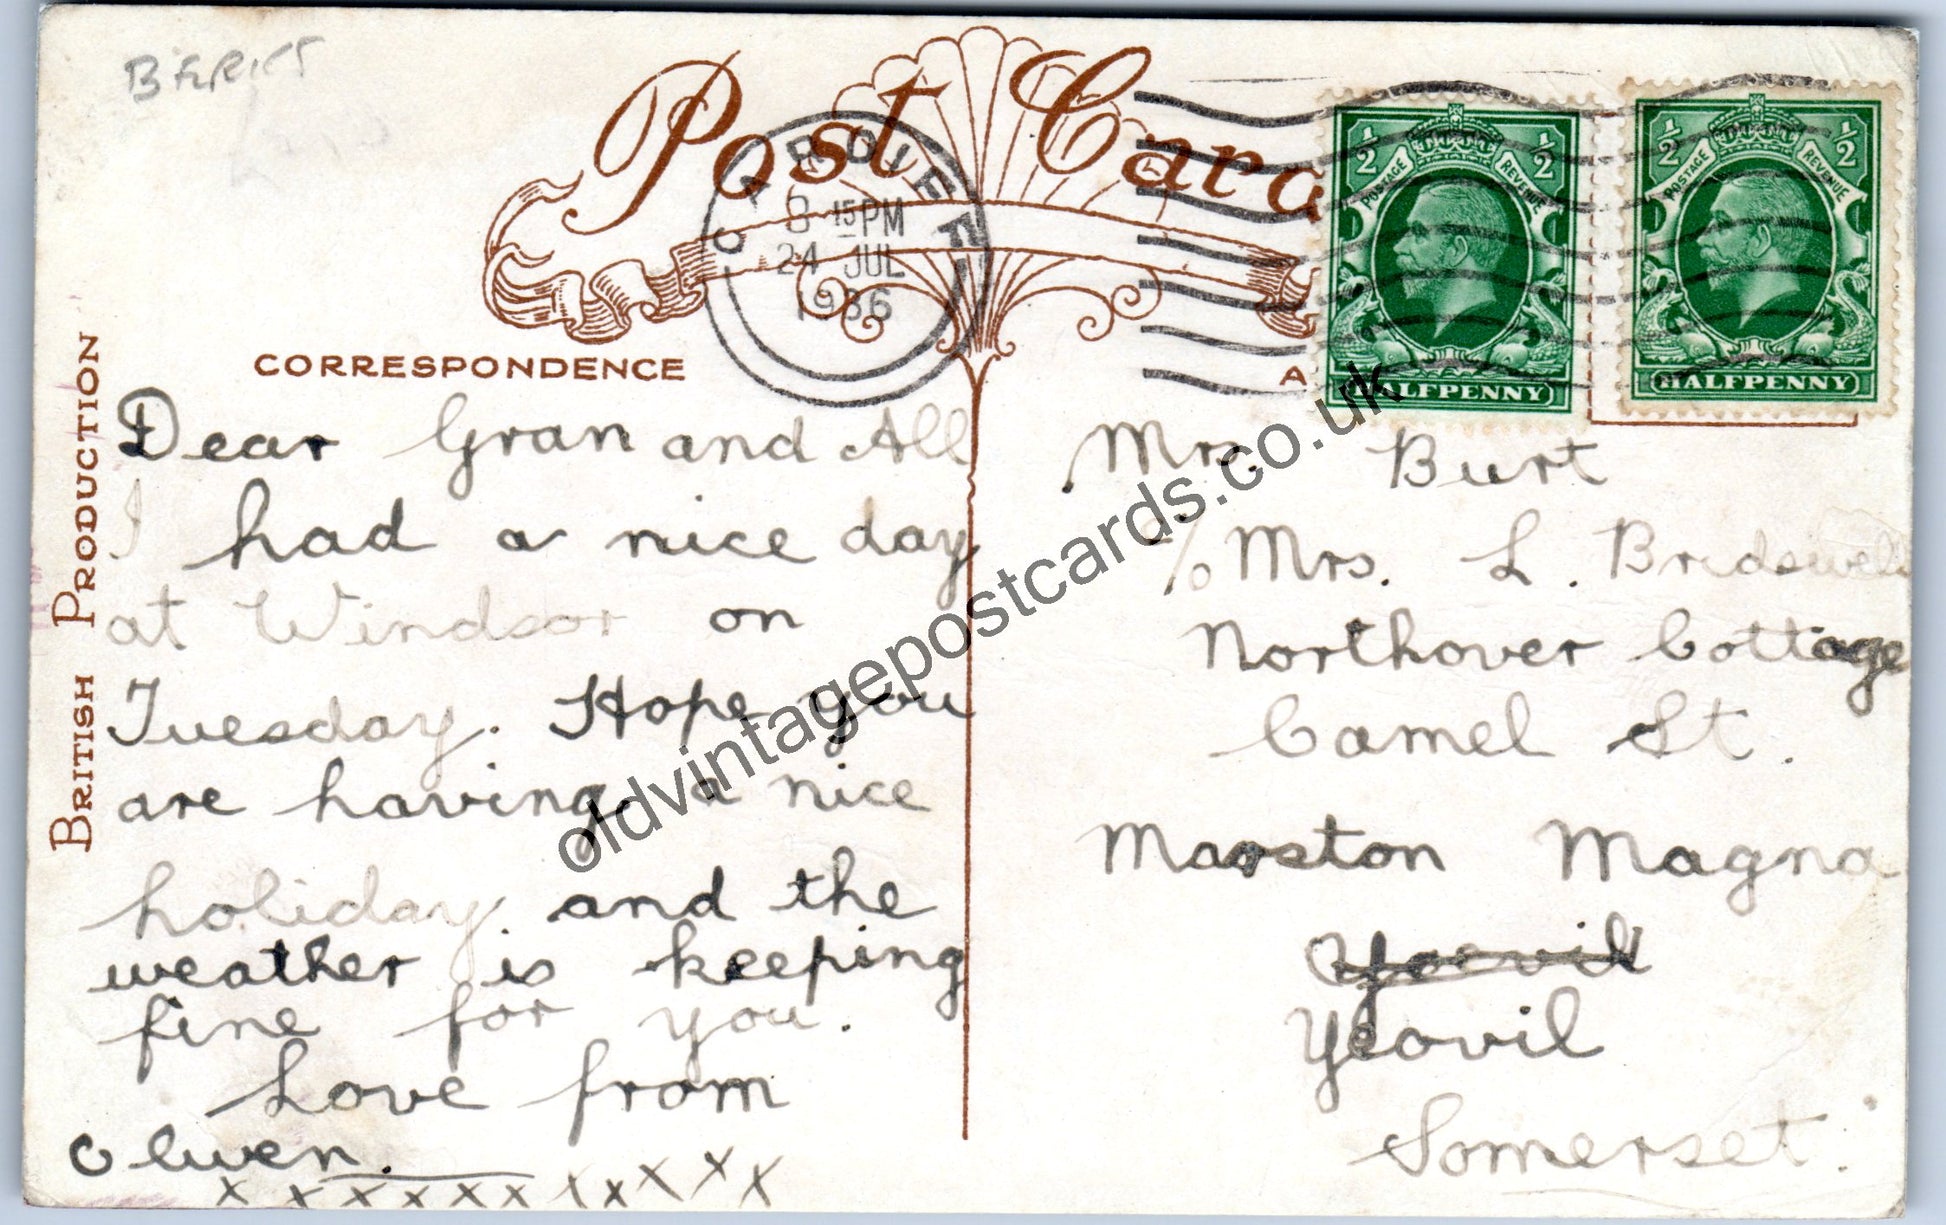 BERKS
Post Card
CARDIFF
8 15 PM
24 JUL
1936
½ ½
POSTAGE REVENUE
HALFPENNY
½ ½
POSTAGE REVENUE
HALFPENNY
BRITISH PRODUCTION
CORRESPONDENCE
A
Dear Gran and All
I had a nice day
at Windsor on
Tuesday. Hope you
are having a nice
holiday and the
weather is keeping
fine for you.
Love from
Olwen.
x x x x x x x x x x x x
Mrs. Burt
c/o Mrs. L. Bridswell
Northover Cottage
Camel St.
Marston Magna
Yeovil
Somerset.
oldvintagepostcards.co.uk